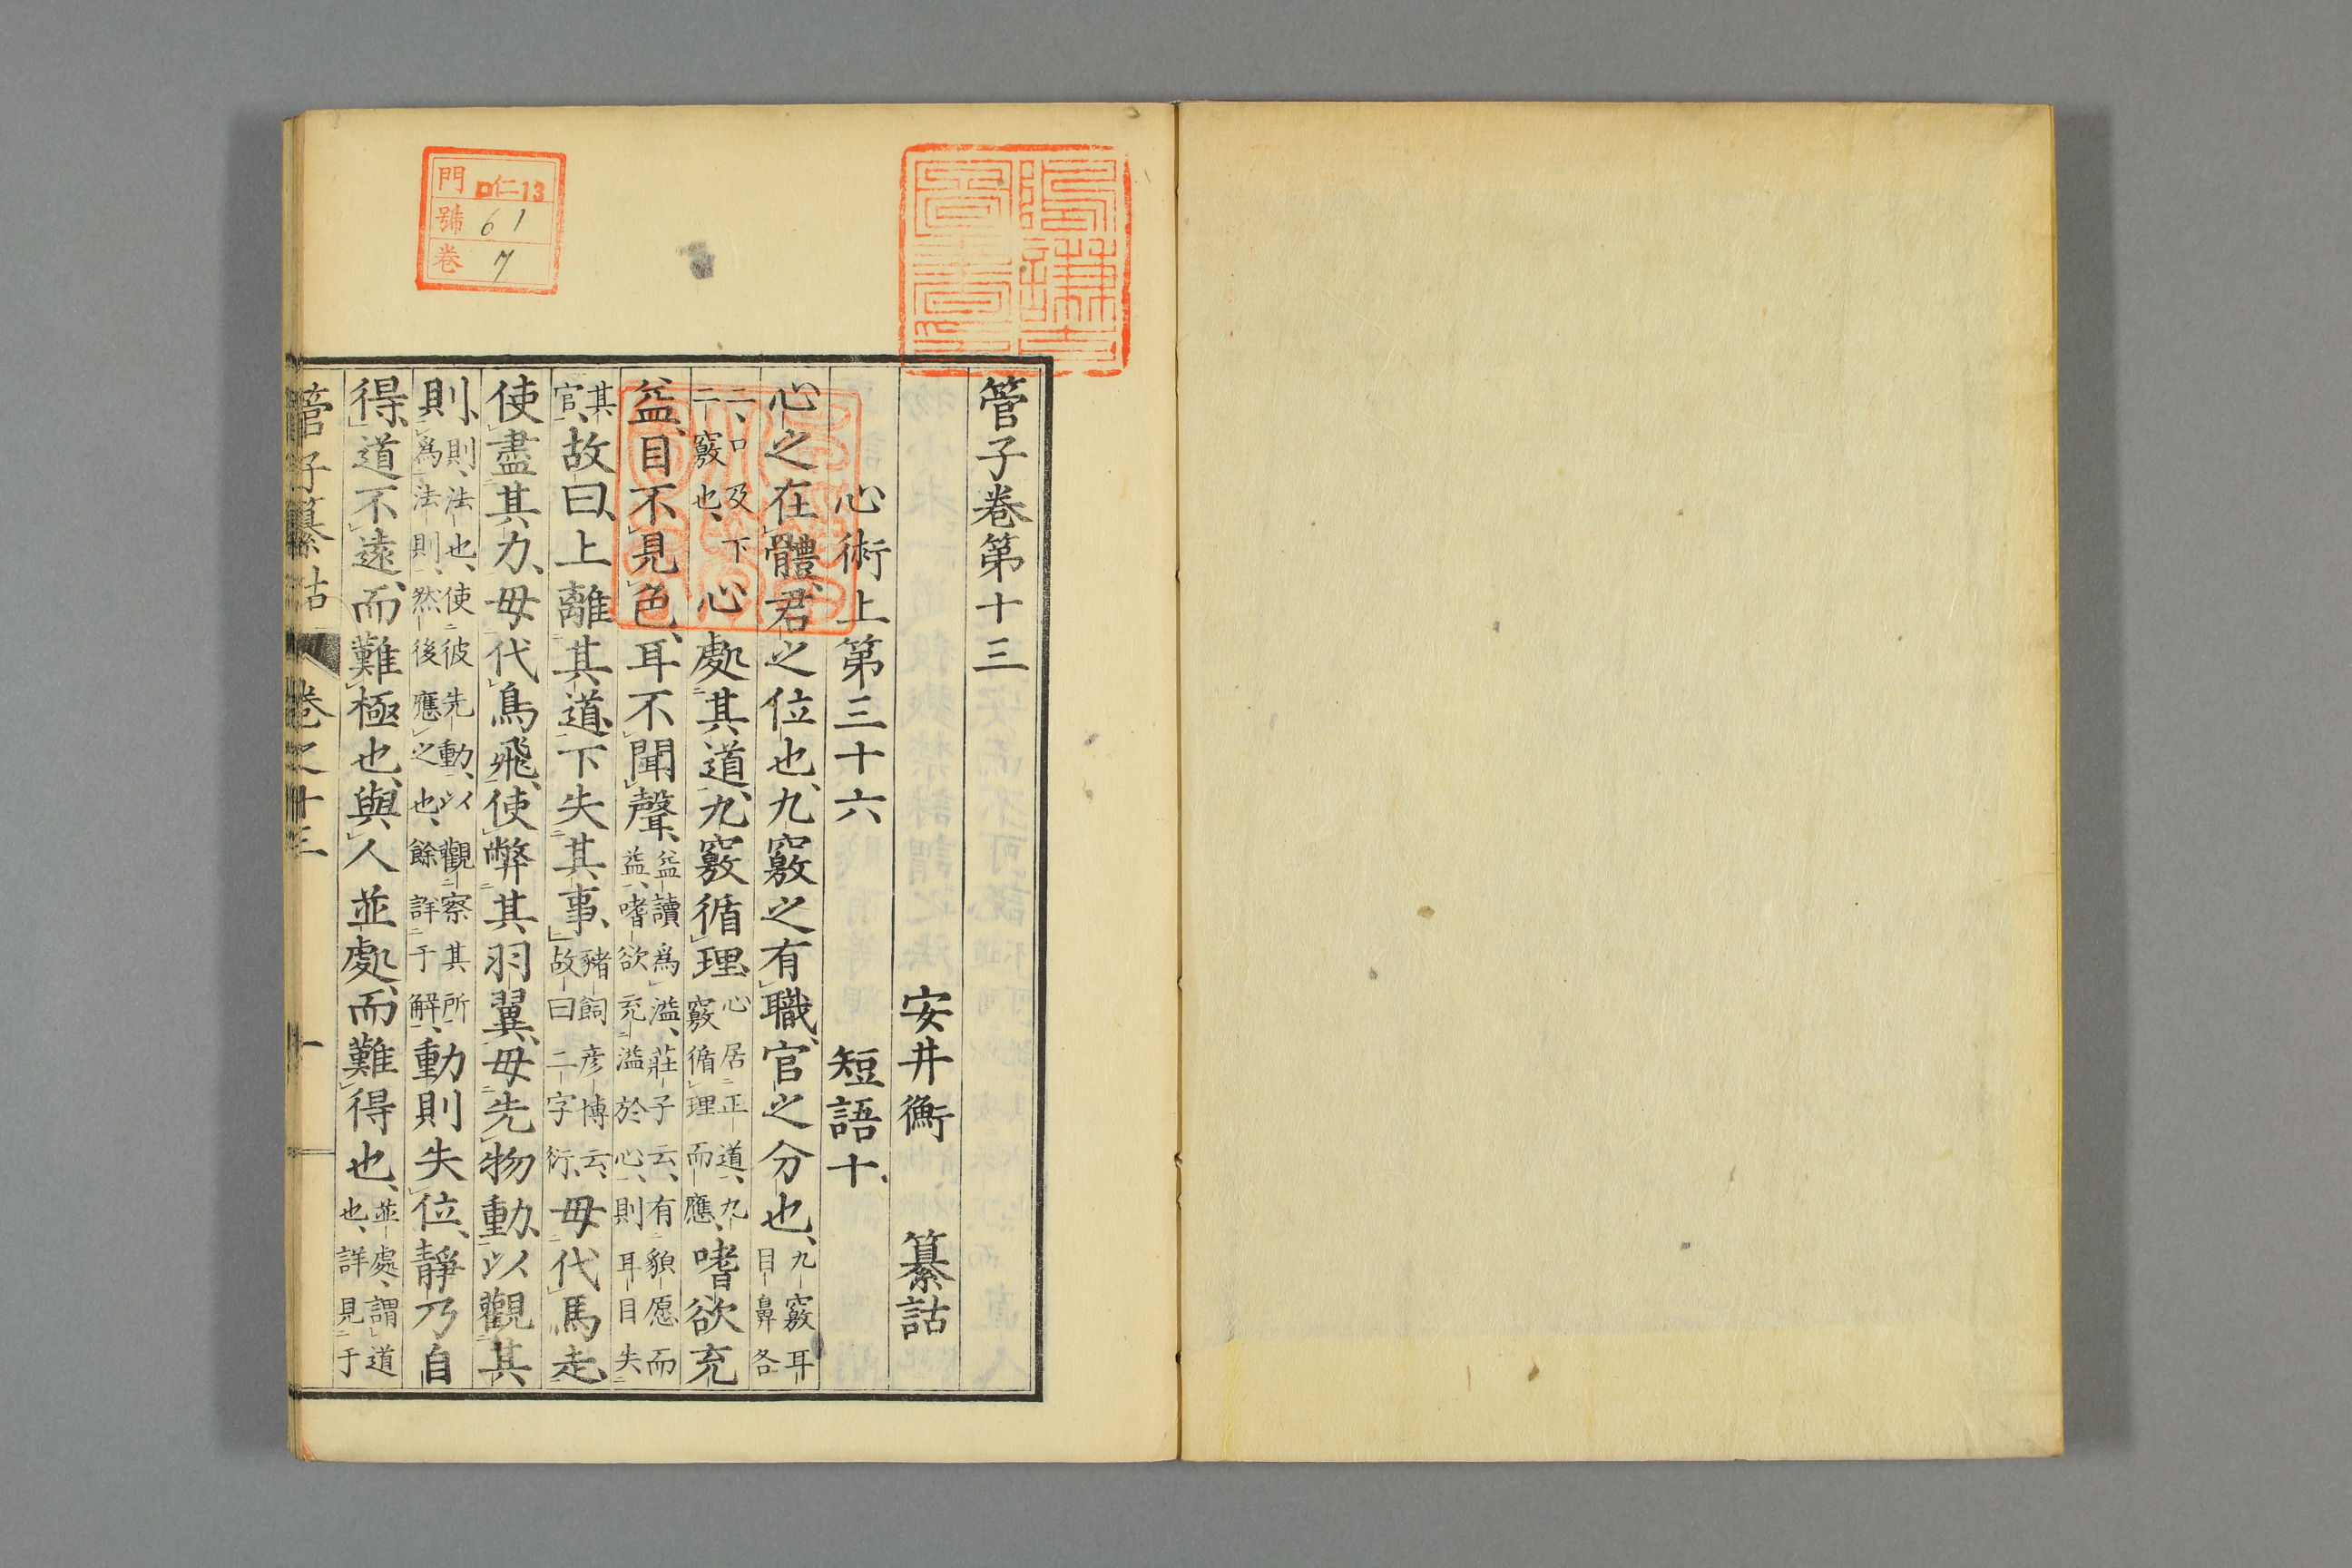 管子卷第十三
安井衡　纂詁
心術上第三十六　短語十、
心之在體、君之位也、九竅之有職、官之分也、九竅耳目鼻各
二、口及下二竅也、心處其道、九竅循理、心居正道、九竅循理而應、嗜欲充
益、目不見色、耳不聞聲、益讀爲溢、莊子云、有貌愿而益、嗜欲充溢於心、則耳目失
其官、故曰、上離其道、下失其事、豬飼彥博云、故曰二字衍、毋代馬走、
使盡其力、毋代鳥飛、使弊其羽翼、毋先物動、以觀其
則、則、法也、使彼先動、以觀察其所爲法則、然後應之也、餘詳于解、動則失位、靜乃自
得、道不遠、而難極也、與人並處、而難得也、並處、謂道也、詳見于
管子纂詁　卷之十三　一
門 ロ仁13
號 61
卷 7